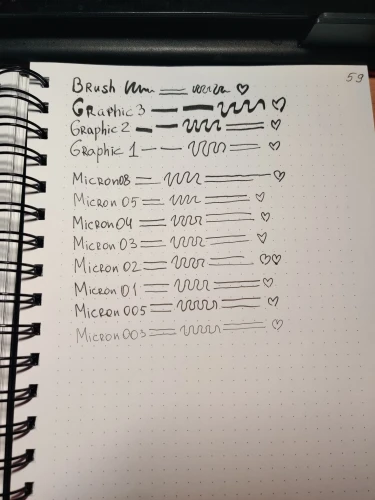 59
Brush
Graphic 3
Graphic 2
Graphic 1
Micron 08
Micron 05
Micron 04
Micron 03
Micron 02
Micron 01
Micron 005
Micron 003